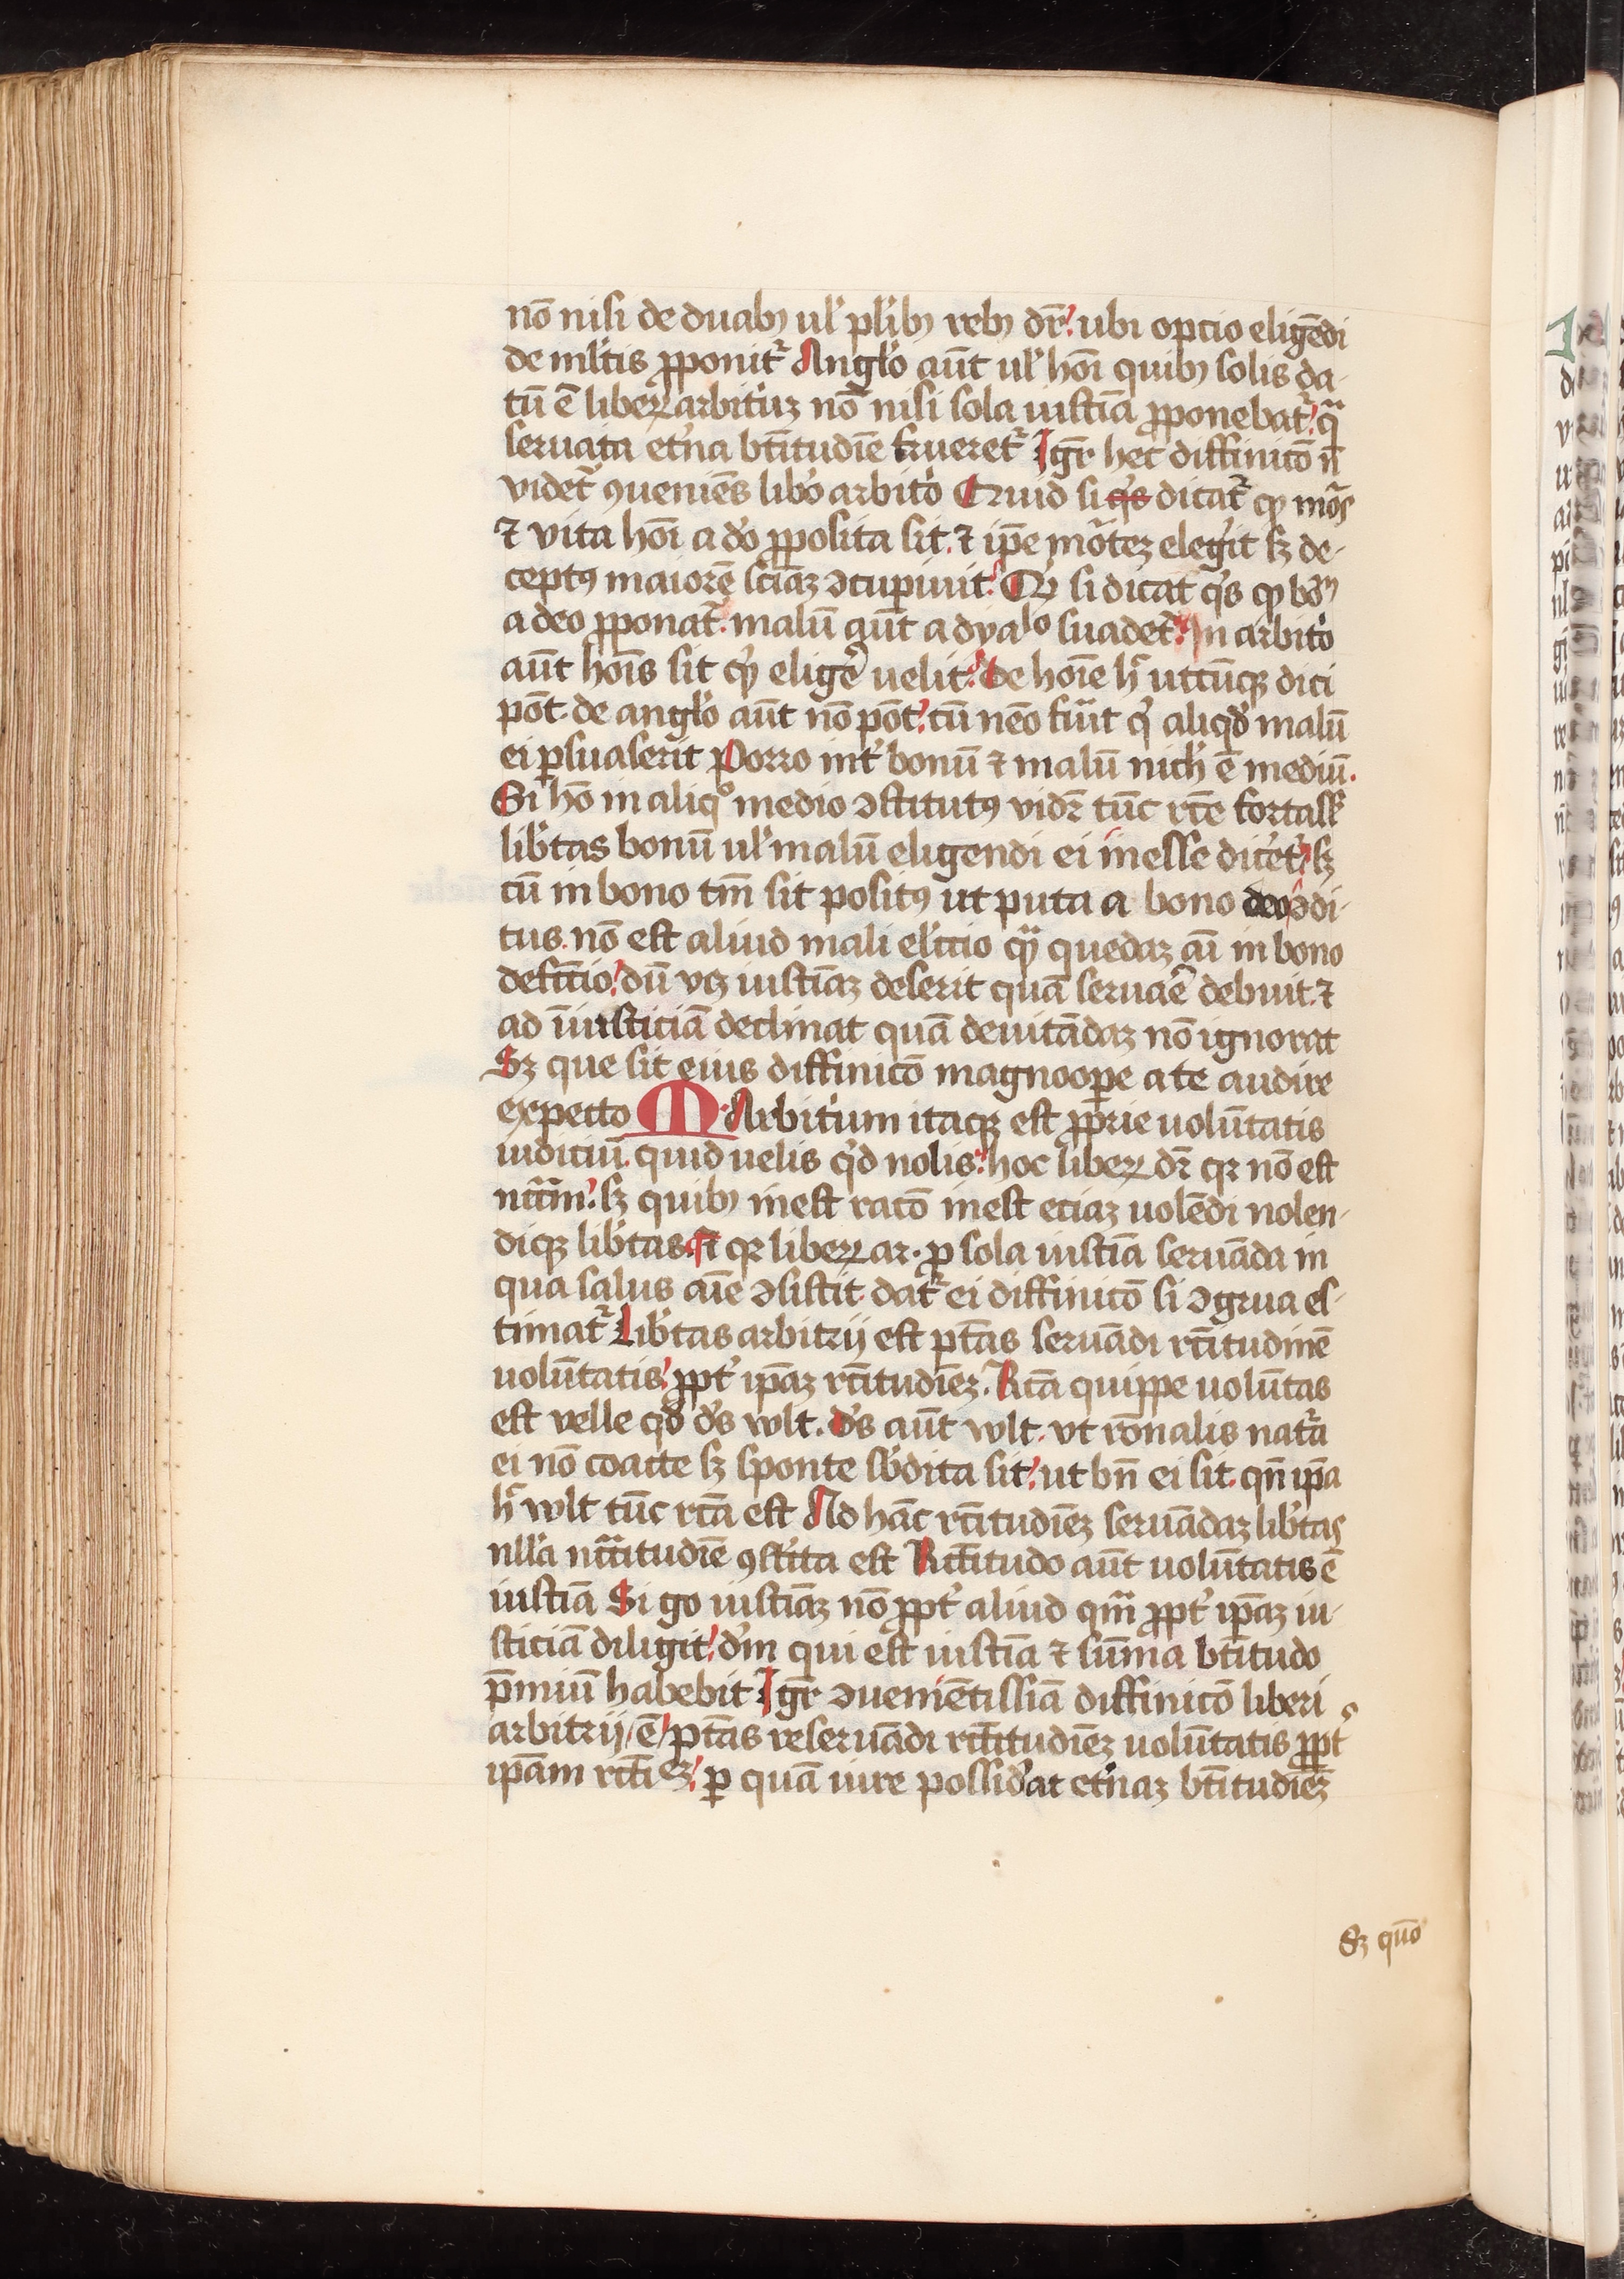 nō nisi de duabꝫ ul' pl'ibꝫ rebꝫ dr̄ ubi optio eligēdi
de ml'tis ꝓponit᷑ Angl'o aūt ul' hōi quibꝫ solis da-
tū ē libeꝝ arbit'iꝫ nō nisi sola iusticiā ꝓponebat᷑ q̄
seruata et'na bt̄itudīe frueret᷑ Igr̄ hec diffinitō n̄
videt᷑ ꝯueniēs lib'o arbit'o Quid si q's dicat᷑ ꝙ mōrs
⁊ vita hōi a d'o ꝓposita sit ⁊ ip̄e mōrteꝫ eleg'it sꝫ de-
ceptꝰ maiorē sciāꝫ ↄcupiuit Qꝫ si dicat q's ꝙ bonū
a deo ꝓponat᷑ malū aūt a dyalo suadet᷑ In arbit'o
aūt hoīs sit qd' elig'e uelit de hoīe h' utcūqꝫ dici
pōt de angl'o aūt nō pōt tū nēo fuit q' aliqd' malū
ei ꝑsuaserit Porro int' bonū ⁊ malū nich' ē mediū
Si hō in aliqº medio ↄstitutꝰ vidr̄ tūc rc̄e fortass'
lib'tas bonū ul' malū eligendi ei inesse dic'et᷑ sꝫ
cū in bono tm̄ sit positꝰ ut puta a bono deo ↄdi-
tus nō est aliud mali el'ctio qͣ quedaꝫ aī in bono
defc̄tio dū vꝫ iustiāꝫ deserit quā seruāe debuit ⁊
ad īiusticiā declinat quā deuitādaꝫ nō ignorat
Sꝫ que sit eius diffinitō magnooꝑe a te audire
expecto M Arbit'um itaqꝫ est ꝓprie uolūtatis
iudiciū quid uelis q'd nolis hoc libeꝝ dr̄ qꝛ nō est
nc̄cm̄ sꝫ quibꝫ inest ratō inest eciaꝫ uolēdi nolen-
diqꝫ lib'tas Et qꝛ libeꝝ ar. ꝓ sola iustiā seruāda in
qua salus aīe ↄsistit dat᷑ ei diffinitō si ↄgrua es-
timat᷑ Lib'tas arbitrij est pt̄as seruādi rc̄itudinē
uolūtatis ꝓpt' ip̄aꝫ rc̄itudīeꝫ Rc̄ta quippe uolūtas
est velle qd' d's wlt D's aūt wlt vt rōnalis nat'a
ei nō coacte sꝫ sponte sb'dita sit ut bn̄ ei sit qn̄ ip̄a
h' wlt tūc rc̄a est Ad hāc rc̄itudīeꝫ seruādaꝫ lib'tas
nll'a nc̄citudīe ꝯst'cta est Rc̄titudo aūt uolūtatis ē
iustiā Si go iustiāꝫ nō ꝓpt' aliud qm̄ ꝓpt' ip̄aꝫ iu-
sticiā diligit d'm qui est iustiā ⁊ sūma bt̄itudo
p̄miū habebit Igr̄ ↄueniētissiā diffinitō liberi
arbitrij ē pt̄as reseruādi rc̄titudīeꝫ uolūtatis ꝓpt'
ip̄am rc̄tieꝫ ꝑ quā iure possid'at et'naꝫ bt̄itudīeꝫ
Sꝫ quō